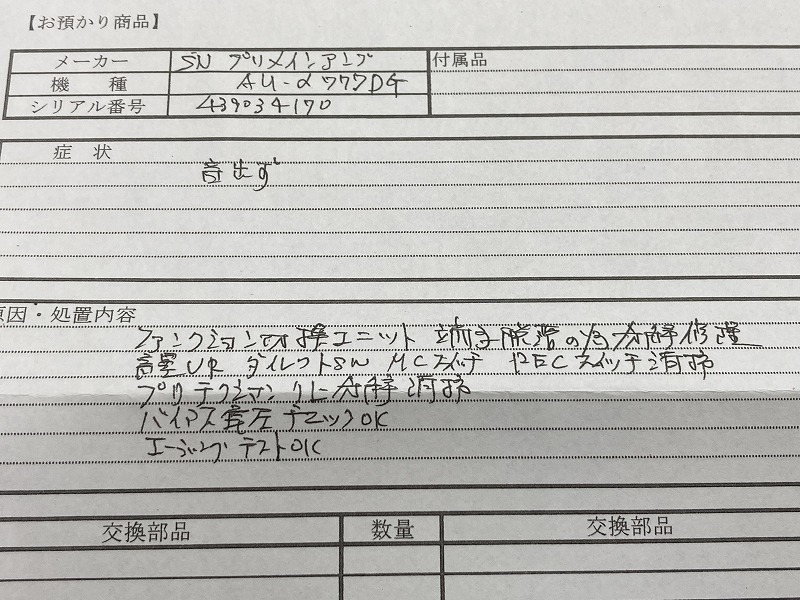 【お預かり商品】
メーカー SN プリメインアンプ 付属品
機 種 AU-α777DG
シリアル番号 439034170
症 状
音出ず
原因・処置内容
ファンクション切換ユニット 端子脱落の為分解修理
音量VR ダイレクトSW MCスイッチ RECスイッチ清掃
プロテクションリレー分解清掃
バイアス電圧チェックOK
エージングテストOK
交換部品 数量 交換部品